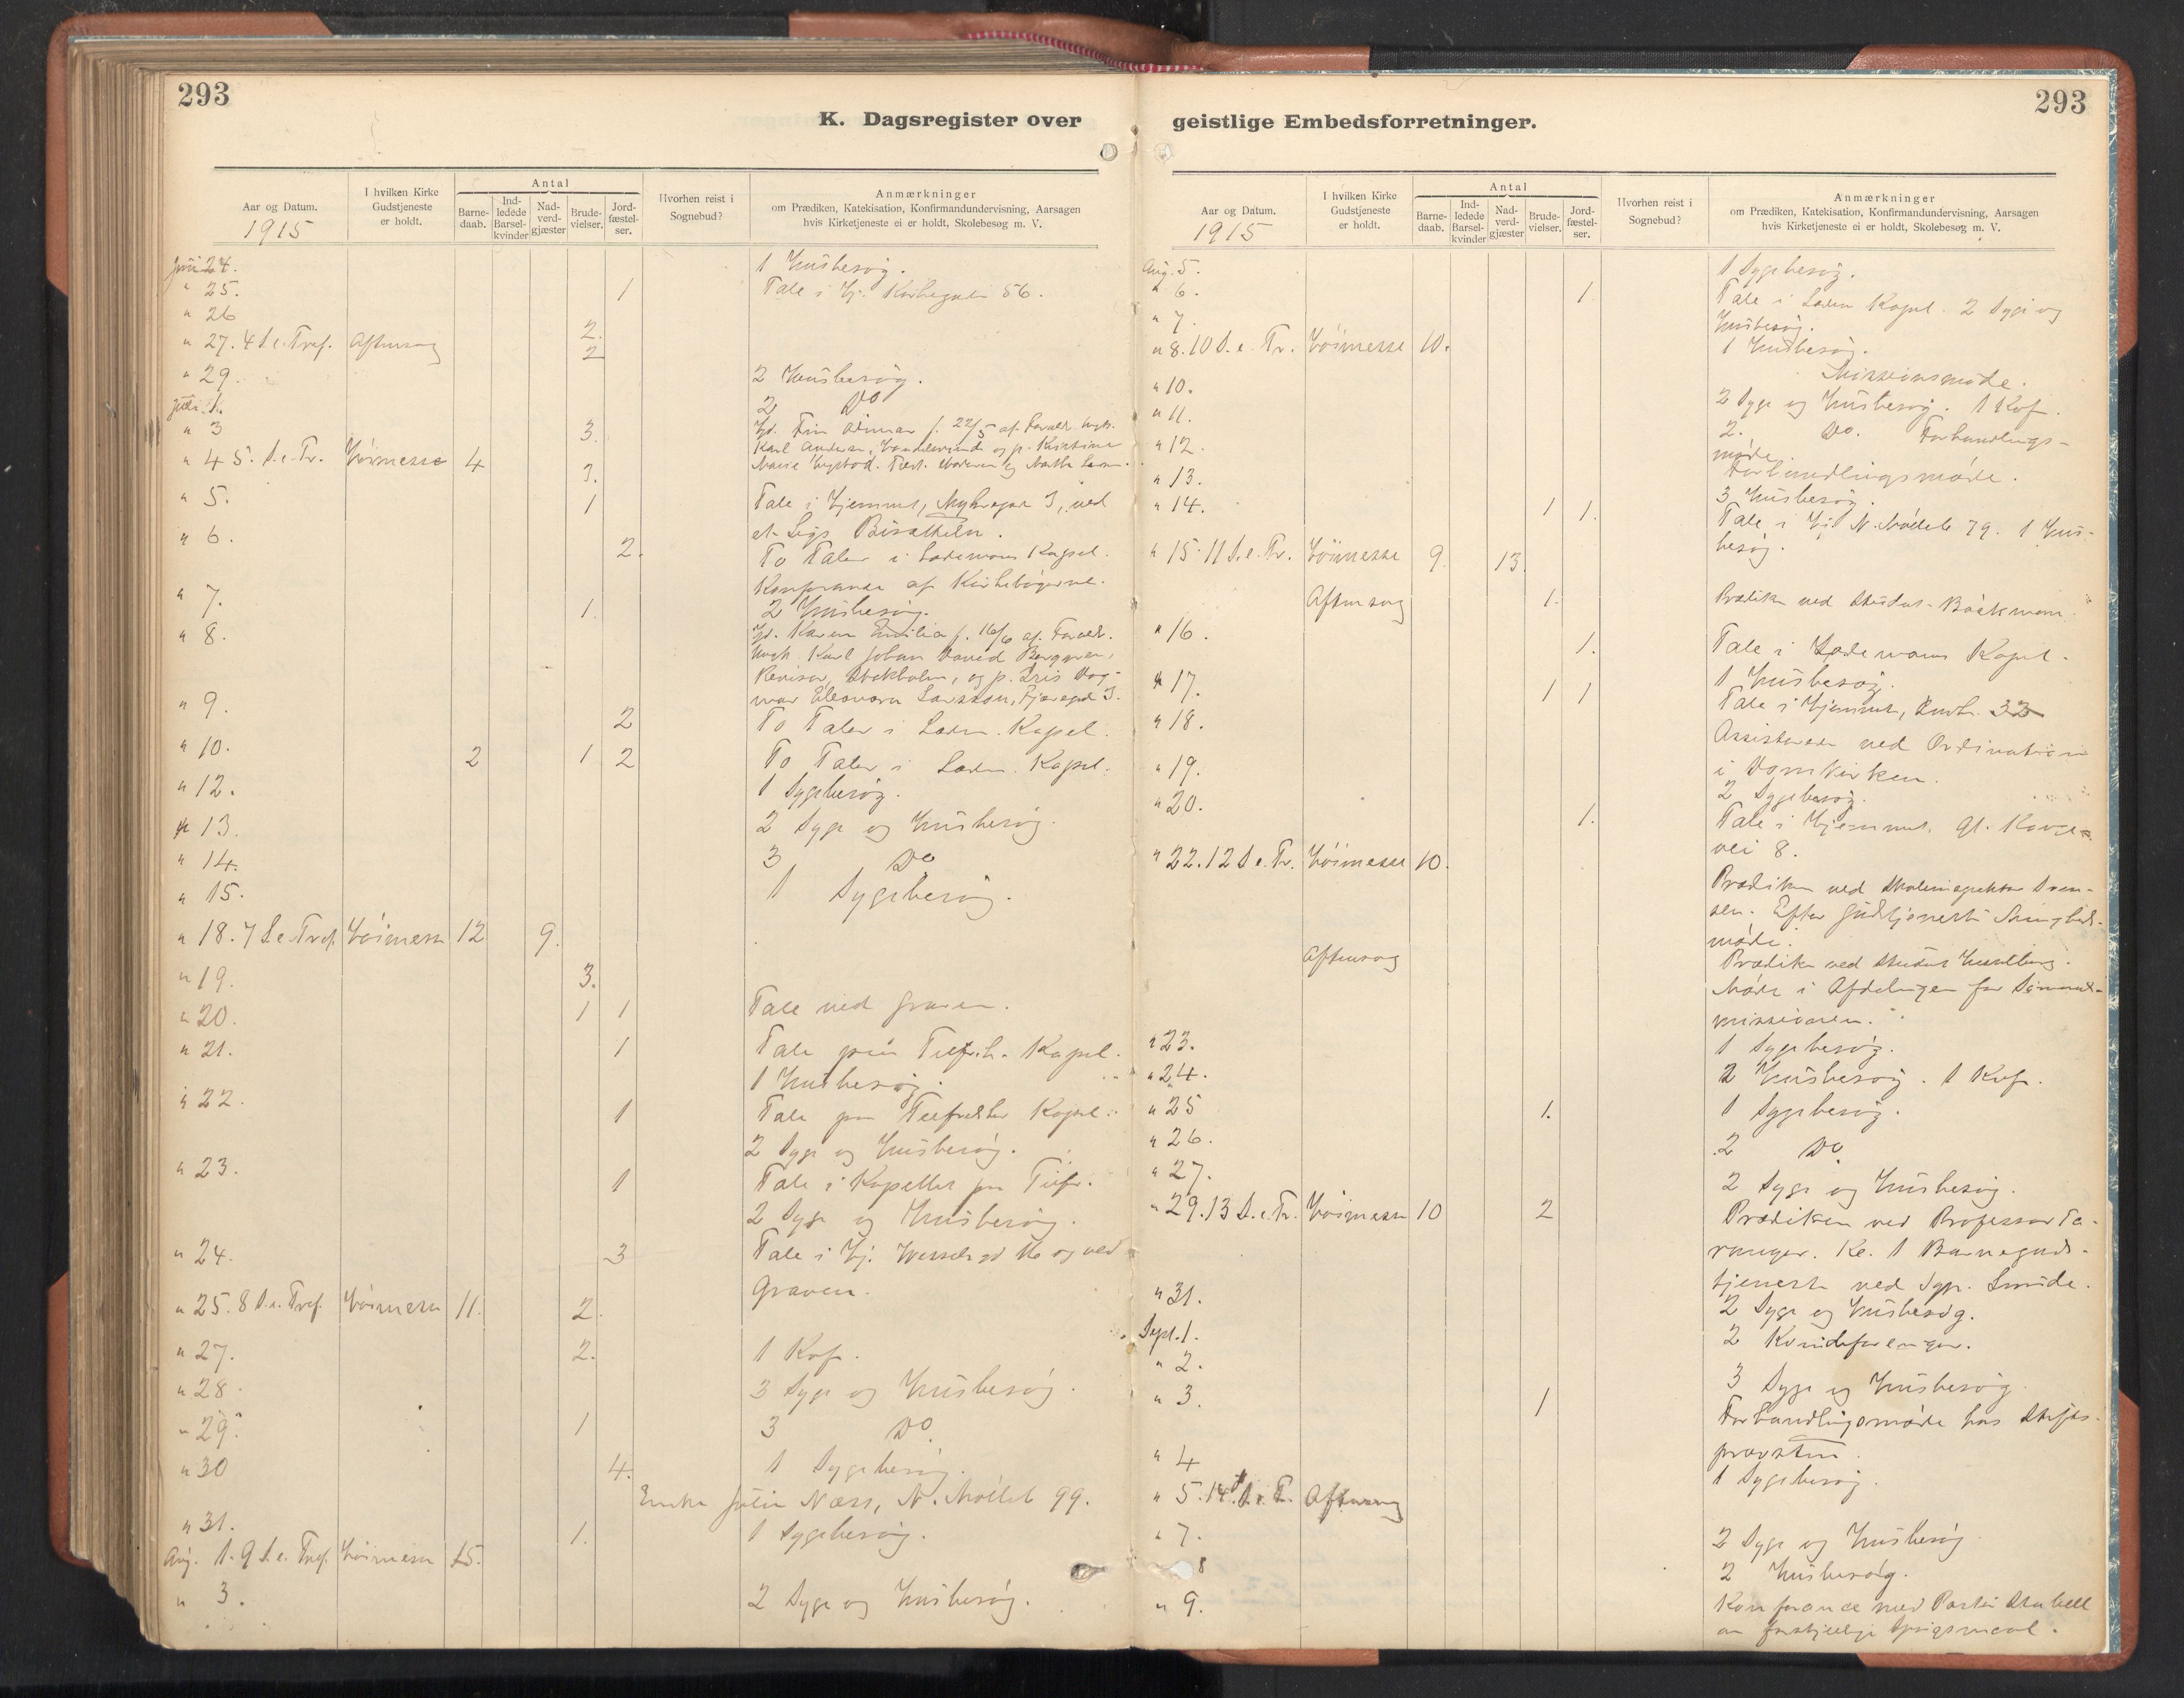 293
K. Dagsregister over
Aar og Datum.
1915
I hvilken Kirke Gudstjeneste er holdt.
Antal
Barne-daab.
Ind-ledede Barsel-kvinder
Nad-verd-gjæster
Brude-vielser.
Jord-fæstel-ser.
Hvorhen reist i Sognebud?
Anmærkninger
om Prædiken, Katekisation, Konfirmandundervisning, Aarsagen
hvis Kirketjeneste ei er holdt, Skolebesøg m. V.
Juni 24. 1 Husbesøg.
" 25. 1 Tale i Hj. 56.
" 26 2.
" 27. 4 S. e. Tref. Aftensang 2
" 29. 2 Husbesøg.
Juli 1. 2 Do
" 3 3. 22/5 af Foræld.
" 4 5. S. e. Tr. Høimesse 4 3. Karl og p. Kristine
Marie
" 5. 1 Tale i Hjemmet, ved
et Ligs Bisættelse.
" 6. 2. To Taler i Kapel.
Konferanse af Kirkebøgerne.
" 7. 1. 2 Husbesøg.
" 8. Karen Emilia f. 16/6 af Foræld.
Karl Johan David
Revisor, Stokholm, og p. Iris Dag-
mar Eleonora Larsson,
" 9. 2 To Taler i Kapel.
" 10. 2 1 2 To Taler i Kapel.
" 12. 1 Sygebesøg.
" 13. 2 Syge og Husbesøg.
" 14. 3 Do
" 15. 1 Sygebesøg.
" 18. 7 S. e. Tref. Høimesse 12 9.
" 19. 3.
" 20. 1 1 Tale ved Graven.
" 21. 1 Tale paa Kapel.
1 Husbesøg.
" 22. 1 Tale paa Kapel.
2 Syge og Husbesøg.
" 23. 1 Tale i Kapellet paa
2 Syge og Husbesøg.
" 24. 3 Tale i Hj. og ved
Graven.
" 25. 8 S. e. Tref. Høimesse 11. 2.
" 27. 2. 1 Kof.
" 28. 3 Syge og Husbesøg.
" 29. 1 3 Do.
" 30 4. 1 Sygebesøg.
Enke Julie Næss, N. 99.
" 31. 1. 1 Sygebesøg.
Aug. 1. 9 S. e. Tref. Høimesse 15.
" 3. 2 Syge og Husbesøg.
293
geistlige Embedsforretninger.
Aar og Datum.
1915
I hvilken Kirke Gudstjeneste er holdt.
Antal
Barne-daab.
Ind-ledede Barsel-kvinder
Nad-verd-gjæster
Brude-vielser.
Jord-fæstel-ser.
Hvorhen reist i Sognebud?
Anmærkninger
om Prædiken, Katekisation, Konfirmandundervisning, Aarsagen
hvis Kirketjeneste ei er holdt, Skolebesøg m. V.
Aug. 5. 1 Sygebesøg.
" 6. 1 Tale i Kapel. 2 Syge og
Husbesøg.
" 7. 1 Husbesøg.
" 8. 10 S. e. Tr. Høimesse 10.
Missionsmøde.
" 10. 2 Syge og Husbesøg. 1 Kof.
" 11. 2. Do. Forhandlings-
møde.
" 12. Forhandlingsmøde.
" 13. 3 Husbesøg.
" 14. 1 1. Tale i Hj. N. 79. 1 Hus-
besøg.
" 15. 11 S. e. Tr. Høimesse 9. 13.
Aftensang 1. Prædiken ved
" 16. 1. Tale i Kapel.
1 Husbesøg.
" 17. 1 1 Tale i Hjemmet, 33
" 18. Assisterede ved Ordination
i Domkirken.
" 19. 2 Sygebesøg.
" 20. 1. Tale i Hjemmet,
vei 8.
" 22. 12 S. e. Tr. Høimesse 10.
Prædiken ved Skoleinspektør
Efter Gudstjeneste
møde.
Aftensang Prædiken ved
Møde i Afdelingen for
missionen.
" 23. 1 Sygebesøg.
" 24. 2 Husbesøg. 1 Kof.
" 25 1. 1 Sygebesøg.
" 26. 2 Do
" 27. 2 Syge og Husbesøg.
" 29. 13 S. e. Tr. Høimesse 10 2 Prædiken ved Professor Ta-
ranger. Kl. 1 Barneguds-
tjeneste ved Sgpr. Smide.
" 31. 2 Syge og Husbesøg.
Sept. 1. 2 Kvindeforeninger.
" 2. 3 Syge og Husbesøg
" 3. 1 Forhandlingsmøde hos Stifts-
provsten.
" 4 1 Sygebesøg.
" 5. 14 S. e. T. Aftensang
" 7. 2 Syge og Husbesøg
8 2 Husbesøg.
" 9. Konferance med
om forskjellige Spørgsmaal.